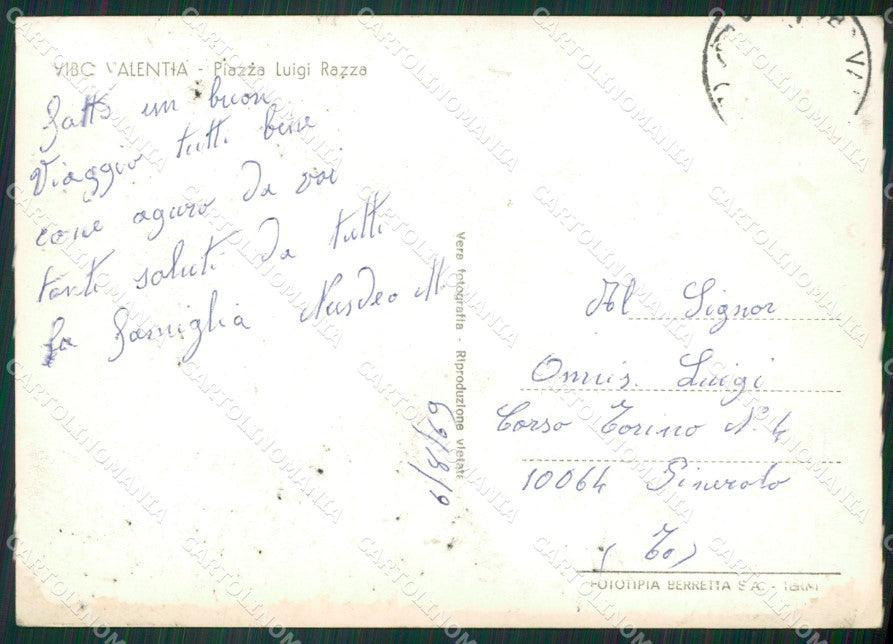 VIBO VALENTIA - Piazza Luigi Razza
Fatto un buon
viaggio tutti bene
come aguro da voi
tanti saluti da tutti
la famiglia Nusdeo M.
6/8/69
Vera fotografia - Riproduzione vietata
Al Signor
Omnis. Luigi
Corso Torino N. 4
10064 Pinerolo
(To)
FOTOTIPIA BERRETTA S.A. - TERNI
CARTOLINOMANIA